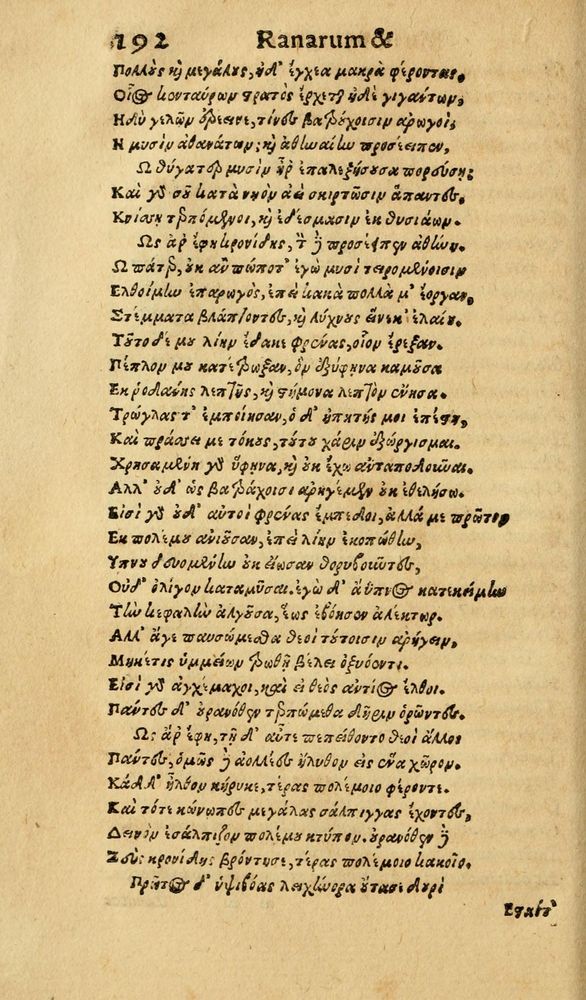 192 Ranarum &
Πολλοὺς καὶ μεγάλους, ἠδ' ἔγχεα μακρὰ φέροντας,
Οἷος κενταύρων στρατὸς ἔρχεται ἠδὲ γιγάντων,
Ηδὺ γελῶν ἐρέεινε, τίνες βατράχοισιν ἀρωγοὶ,
Η μυσὶν ἀθανάτων; καὶ ἀθηναίην προσέειπεν,
Ω θύγατερ μυσὶν ἦρ ἐπαλεξήσουσα πορεύσῃ;
Καὶ γὰρ σοῦ κατὰ νηὸν ἀεὶ σκιρτῶσιν ἅπαντες.
Κνίσῃ τερπόμενοι, καὶ ἐδέσμασιν ἐκ θυσιάων.
Ως ἀρ ἔφη κρονίδης, τὸν δὲ προσέειπεν ἀθήνη.
Ω πάτερ, οὐκ ἂν πώποτ' ἐγὼ μυσὶ τειρομένοισιν
Ελθοίμην ἐπαρωγὸς, ἐπεὶ κακὰ πολλὰ μ' ἔοργαν,
Στέμματα βλάπτοντες, καὶ λύχνους εἵνεκ' ἐλαίου.
Τοῦτο δέ μου λίην ἔδακε φρένας, οἷον ἔρεξαν.
Πέπλον μου κατέτρωξαν, ὃν ἐξύφηνα καμοῦσα
Εκ ῥοδάνης λεπτῆς, καὶ στήμονα λεπτὸν ἔνησα.
Τρώγλας τ' ἐμποίησαν, ὁ δ' ἠπητής μοι ἐπέστη,
Καὶ πράσσει με τόκους, τούτου χάριν ἐξώργισμαι.
Χρησαμένη γὰρ ὕφηνα, καὶ οὐκ ἔχω ἀνταποδοῦναι.
Αλλ' οὐδ' ὣς βατράχοισι ἀρηγέμεν οὐκ ἐθελήσω.
Εἰσὶ γὰρ οὐδ' αὐτοὶ φρένας ἔμπεδοι, ἀλλά με πρῶτον
Εκ πολέμου ἀνιοῦσαν, ἐπεὶ λίην ἐκοπώθην,
Υπνου δευομένην οὐκ εἴασαν θορυβοῦντες,
Οὐδ' ὀλίγον καταμῦσαι. ἐγὼ δ' ἄυπνος κατεκείμην
Τὴν κεφαλὴν ἀλγοῦσα, ἕως ἐβόησεν ἀλέκτωρ.
Αλλ' ἄγε παυσώμεσθα θεοὶ τούτοισιν ἀρήγειν,
Μηκέτις ὑμμείων τρωθῇ βέλει ὀξυόεντι.
Εἰσὶ γὰρ ἀγχέμαχοι, καὶ εἰ θεὸς ἀντίος ἔλθοι.
Πάντες δ' οὐρανόθεν τερπώμεθα δῆριν ὁρῶντες.
Ως ἀρ ἔφη, τῇ δ' αὖτε πεπείθοντο θεοὶ ἄλλοι
Πάντες, ὁμῶς δὲ ἀολλέες ἤλυθον εἰς ἕνα χῶρον.
Κὰδ δ' ἦλθον κήρυκε, τέρας πολέμοιο φέροντε.
Καὶ τότε κώνωπες μεγάλας σάλπιγγας ἔχοντες,
Δεινὸν ἐσάλπιζον πολέμου κτύπον. οὐρανόθεν δὲ
Ζεὺς κρονίδης βρόντησε, τέρας πολέμοιο κακοῖο.
Πρῶτος δ' ὑψιβόας λειχήνορα οὔτασε δουρὶ
Εσαότ'